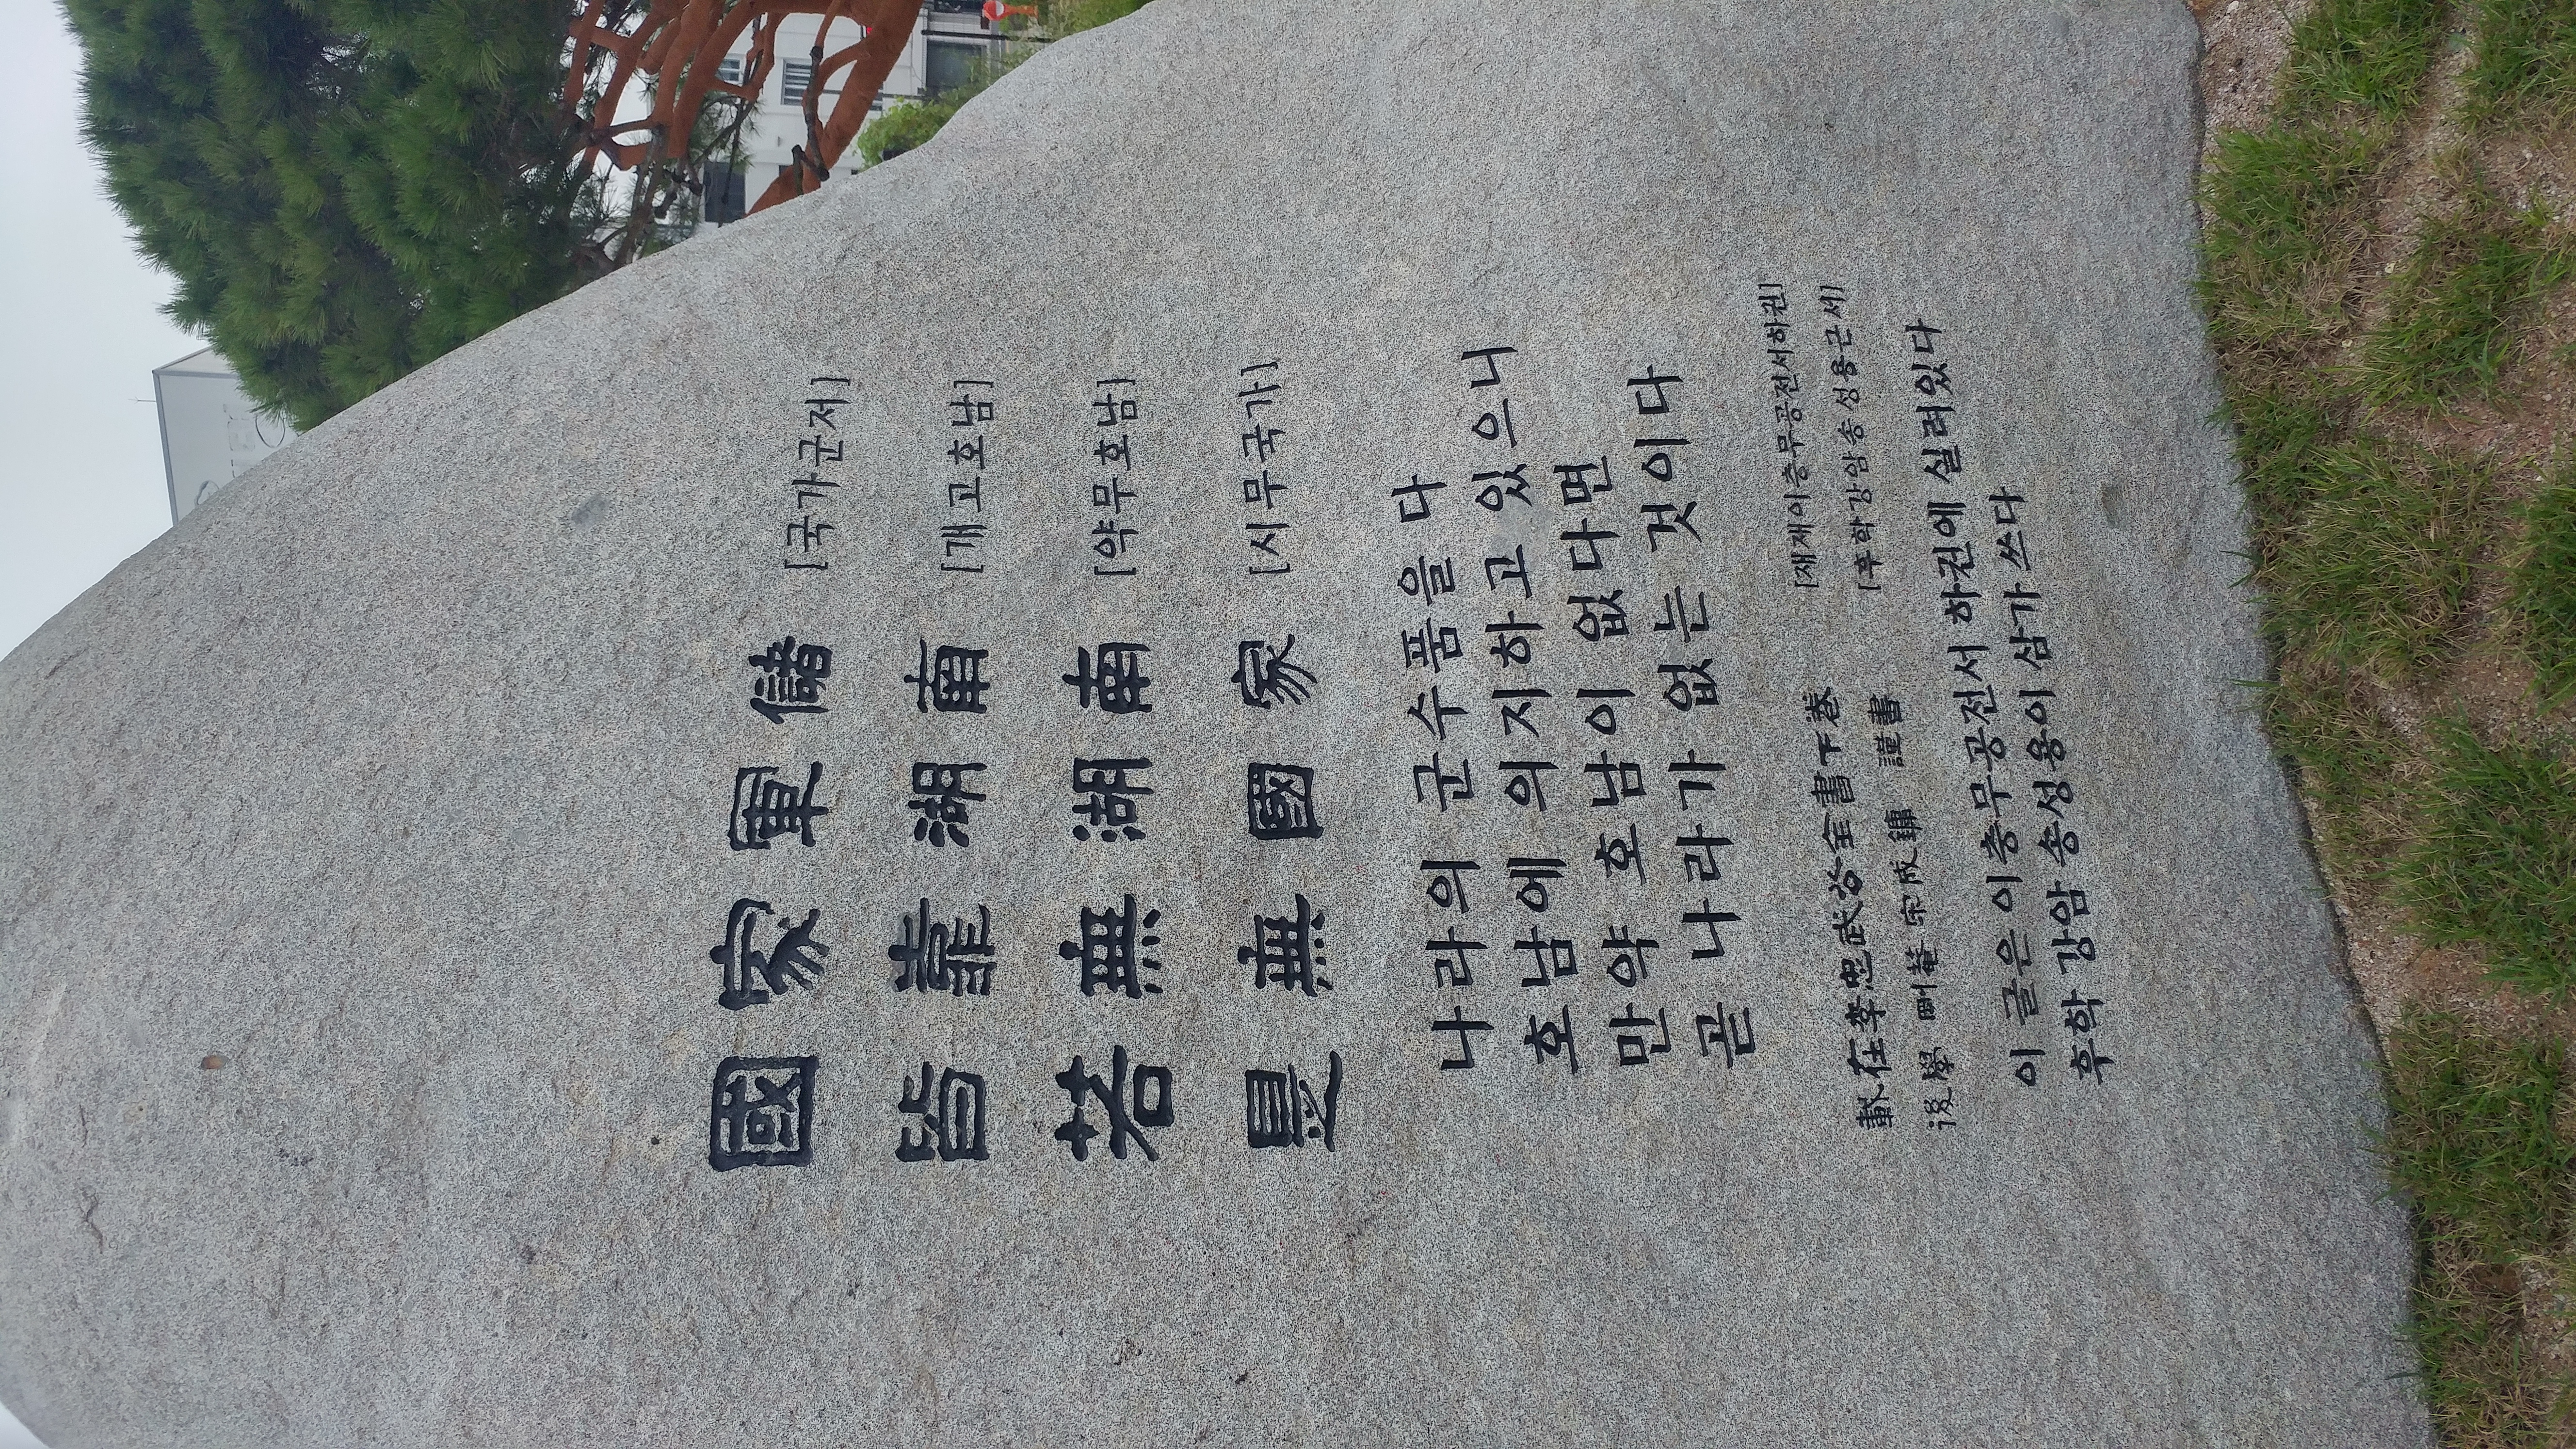 國家軍儲 [국가군저]
皆靠湖南 [개고호남]
若無湖南 [약무호남]
是無國家 [시무국가]
나라의 군수품을 다
호남에 의지하고 있으니
만약 호남이 없다면
곧 나라가 없는 것이다
載在李忠武公全書下卷 [재재이충무공전서하권]
後學剛菴宋成鏞 謹書 [후학강암송성용근서]
이 글은 이충무공전서 하권에 실려있다
후학 강암 송성용이 삼가 쓰다